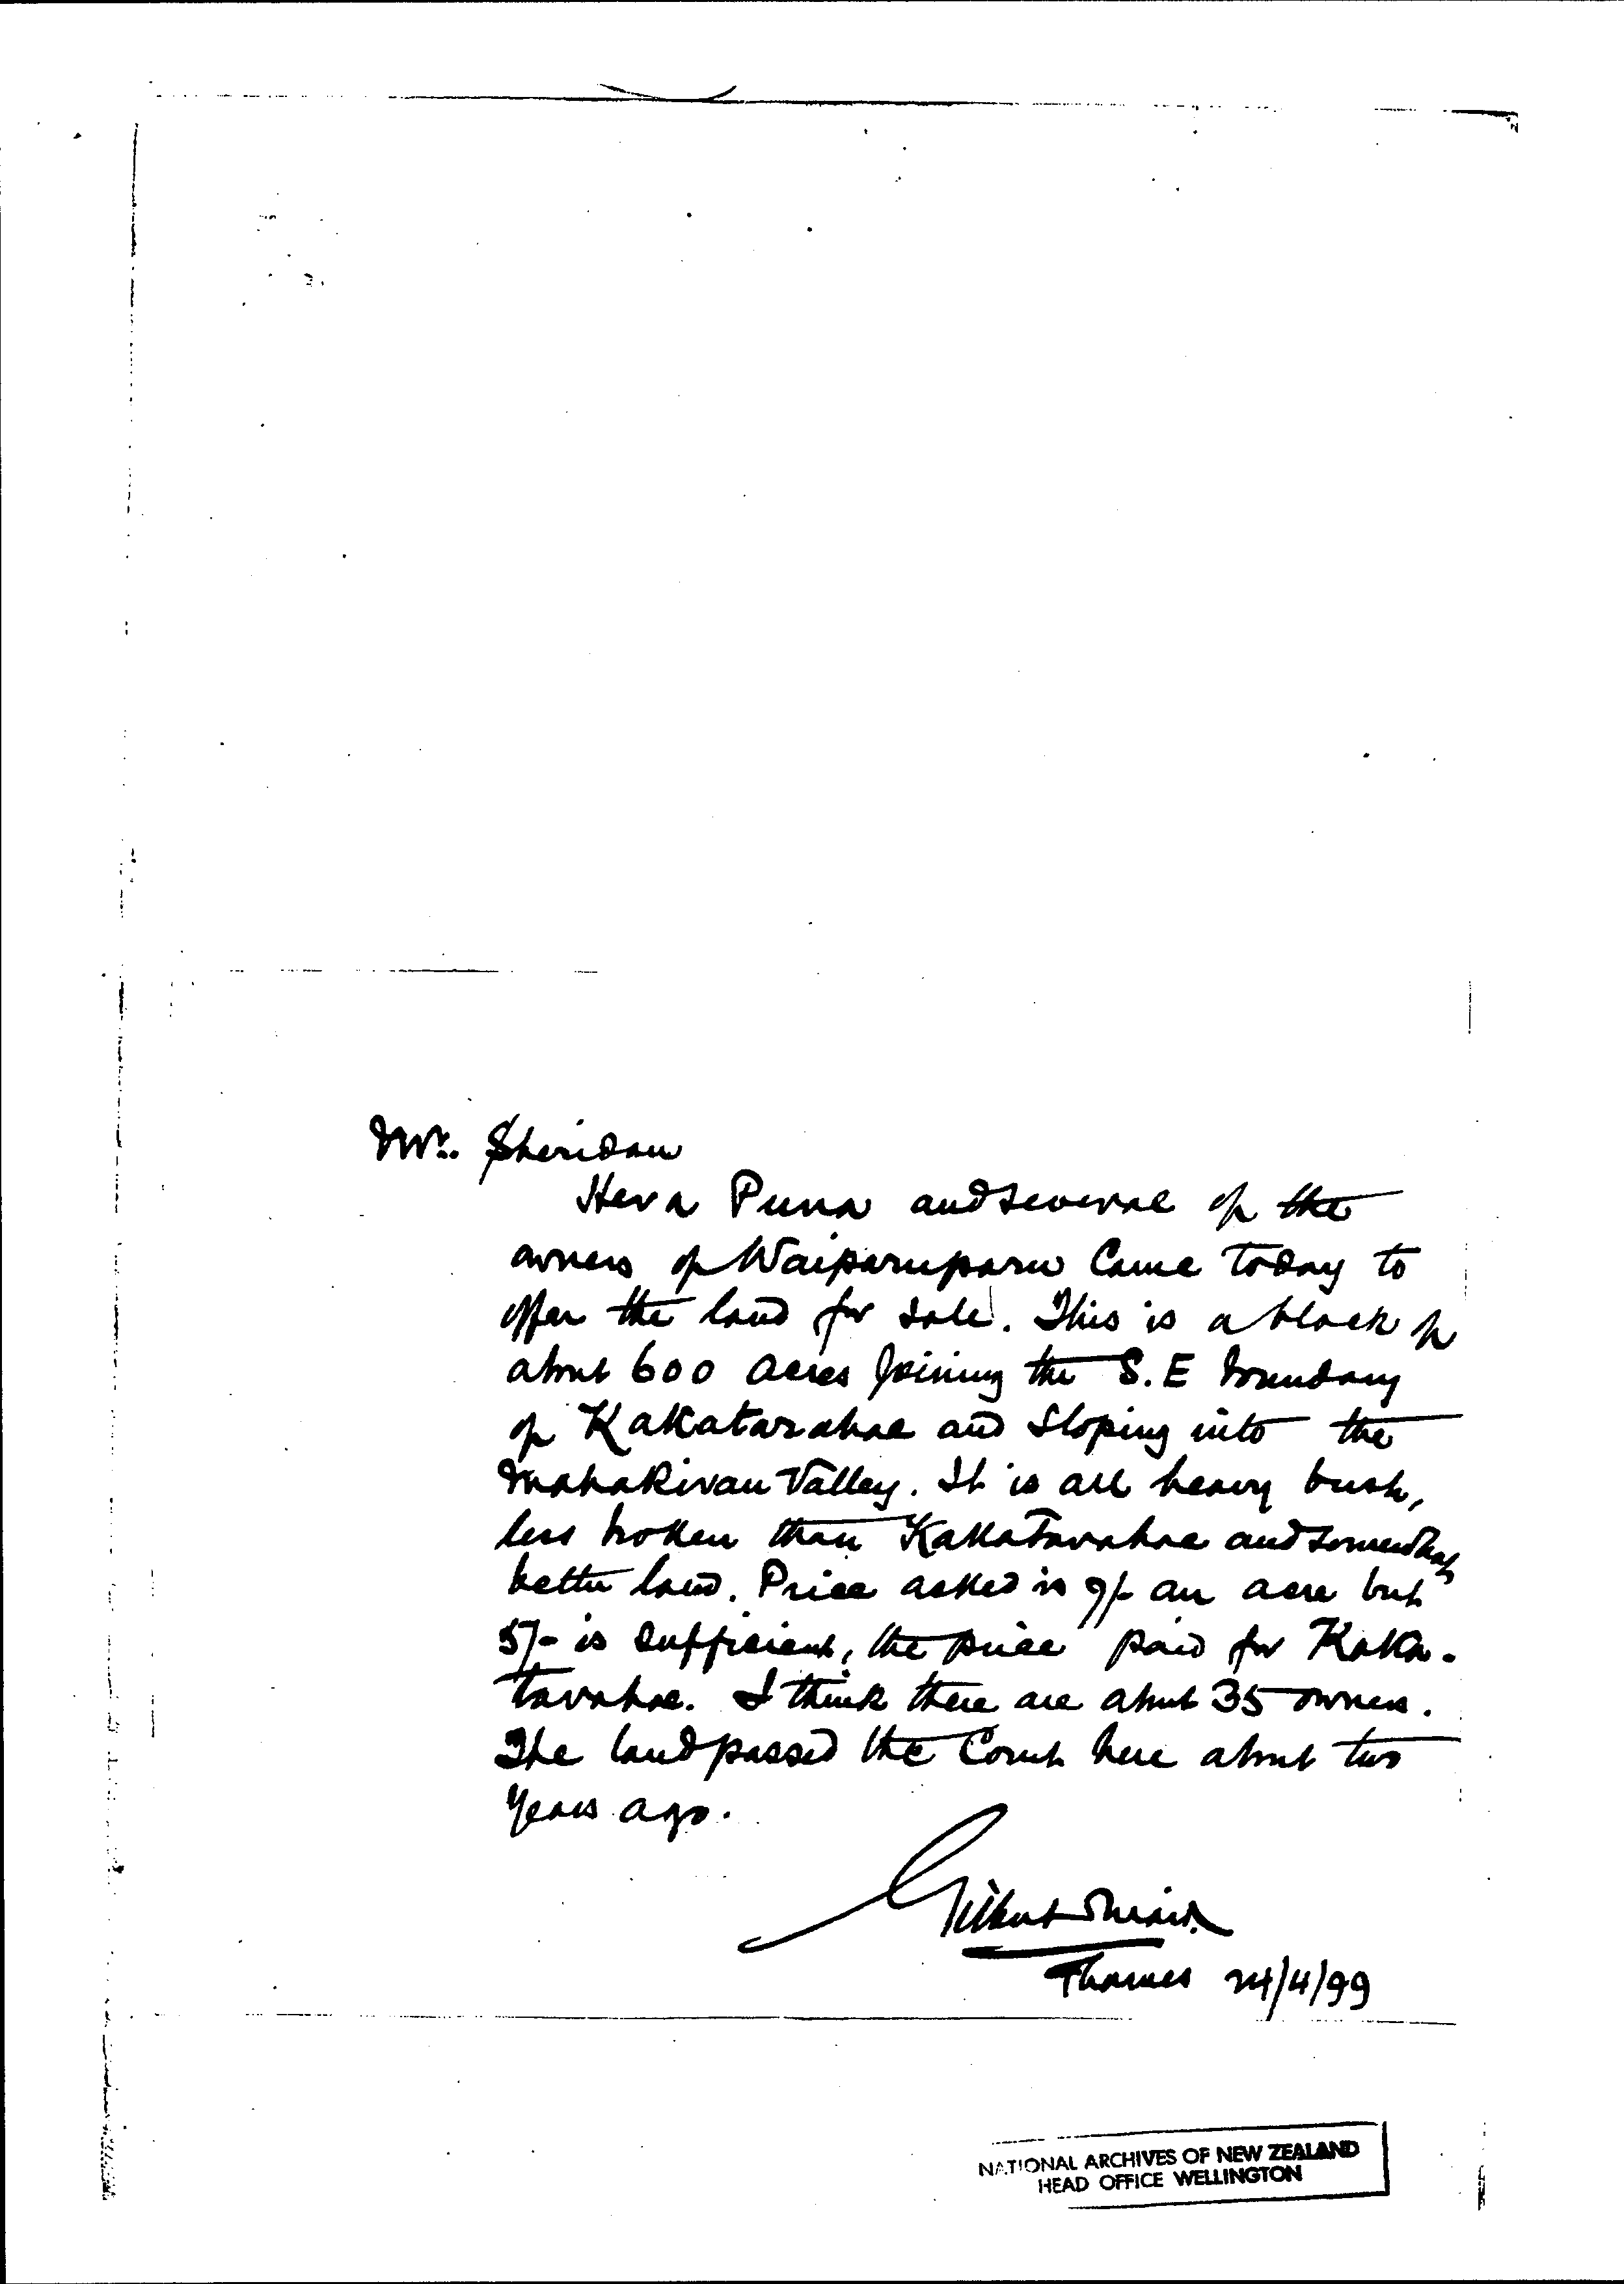 Mr. Sheridan
Hera Puna and several of the
owners of Waiparuparu Came today to
offer the land for sale. This is a block of
about 600 acres joining the S.E boundary
of Kakatarahae and Sloping into the
Mahakirau Valley. It is all heavy bush,
less broken than Kakatarahae and somewhat
better land. Price asked is 7/- an acre but
5/- is sufficient, the price paid for Kaka-
tarahae. I think there are about 35 owners.
The land passed the Court here about two
years ago.
Gilbert Mair
Thames 24/4/99
NATIONAL ARCHIVES OF NEW ZEALAND
HEAD OFFICE WELLINGTON